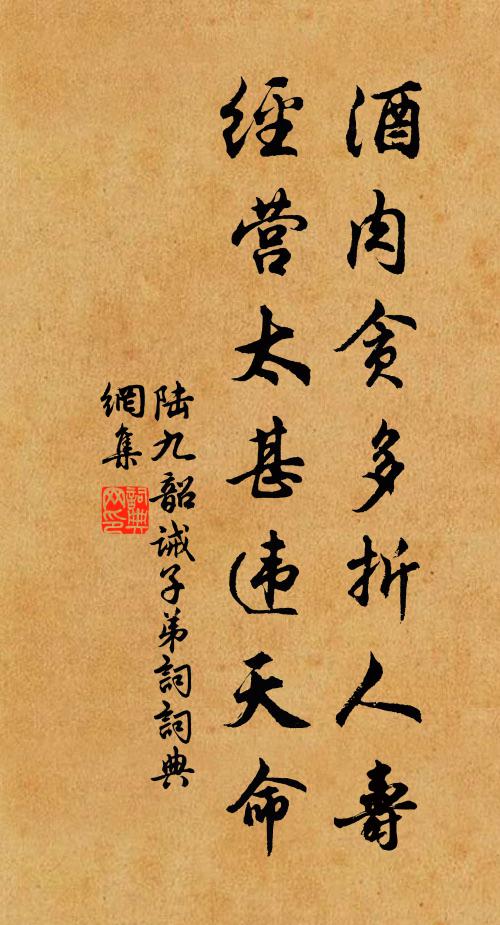 酒肉贪多折人壽
經营太甚违天命
陆九韶诫子弟詞詞典
網集
詞典
网印